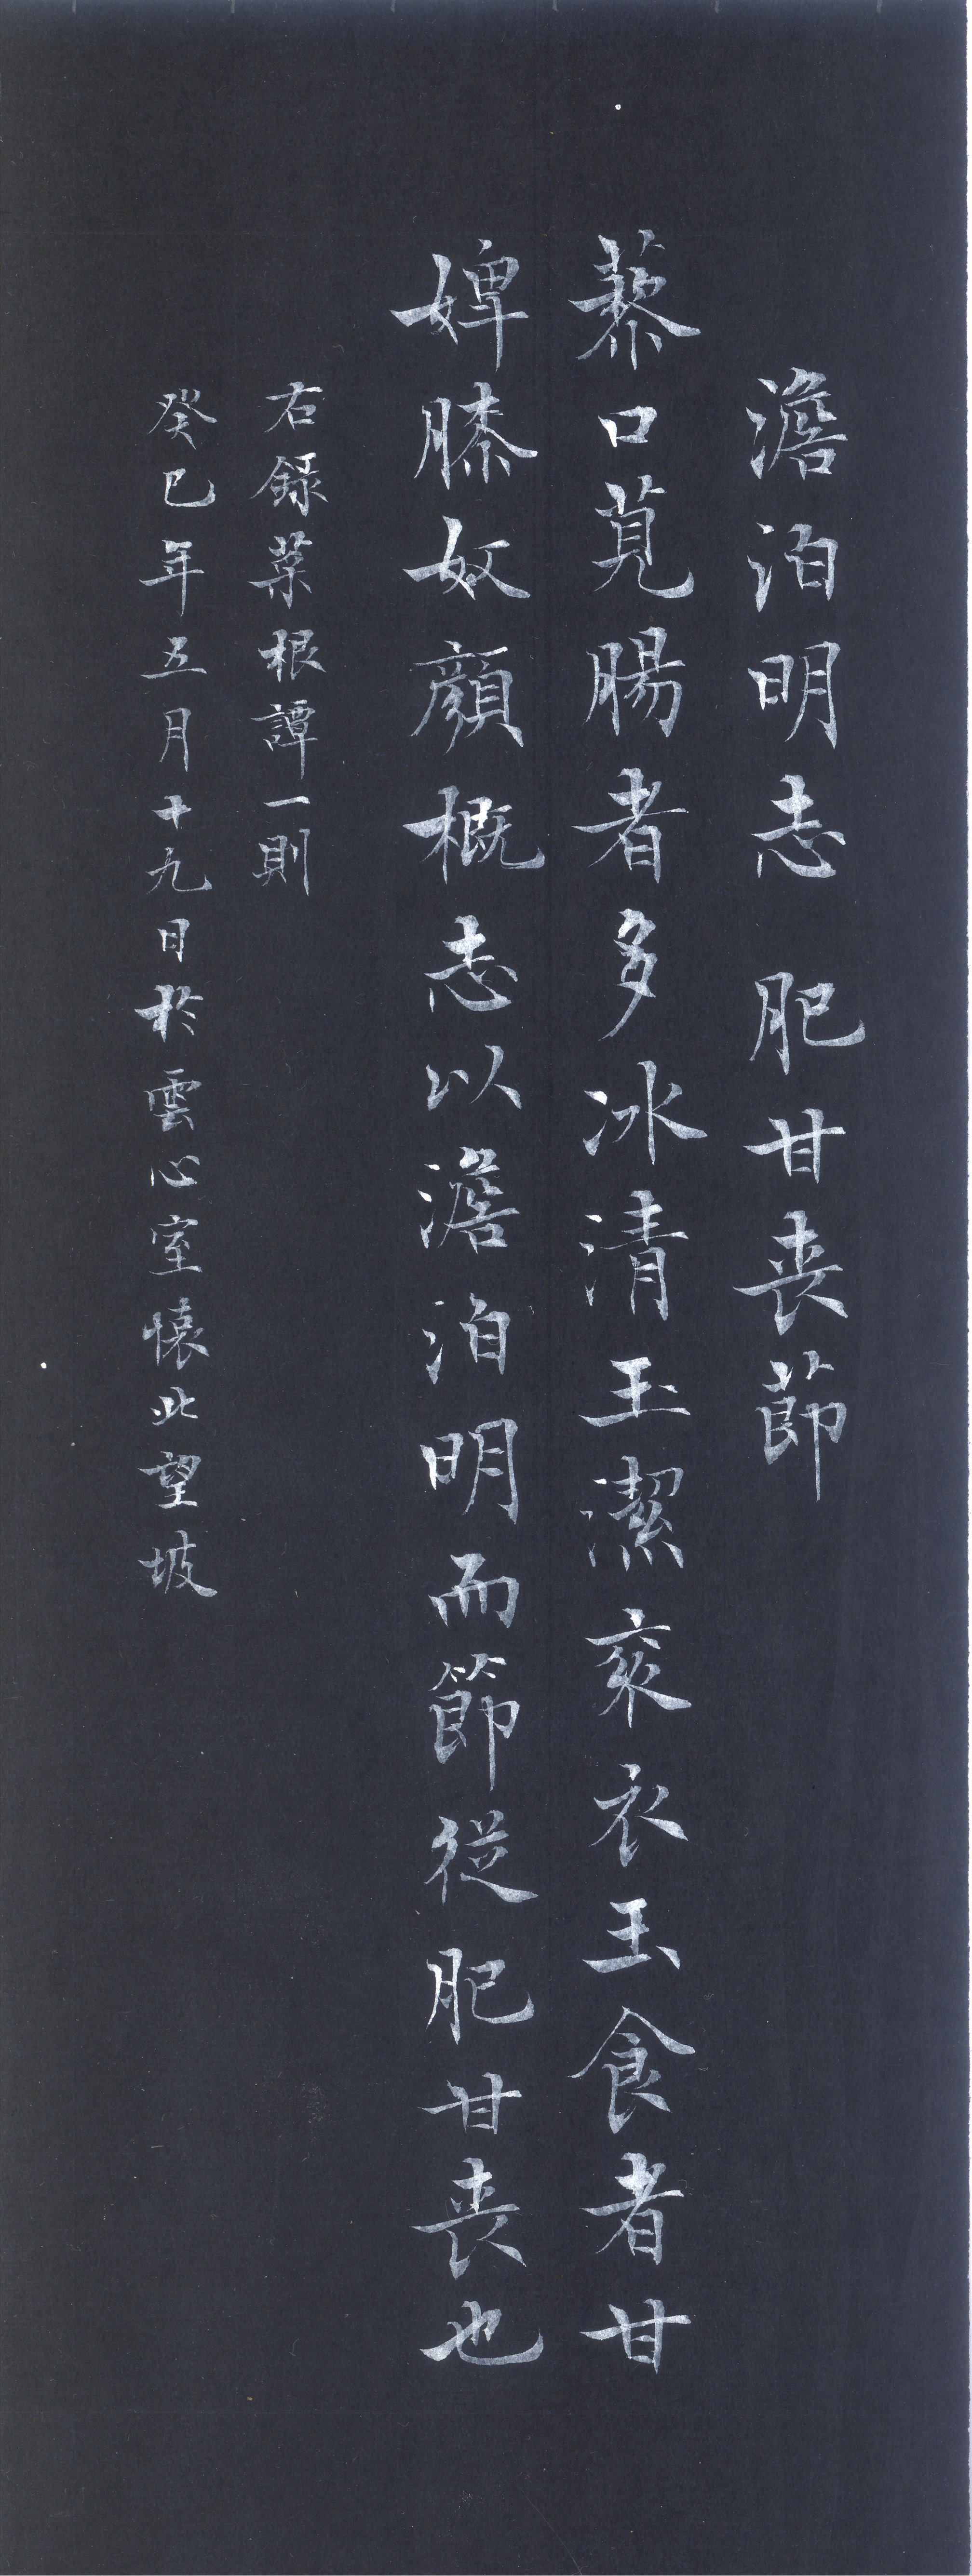 澹泊明志 肥甘丧節
藜口莧腸者多冰清玉潔衮衣玉食者甘
婢膝奴顔概志以澹泊明而節從肥甘丧也
右録菜根譚一則
癸巳年五月十九日於雲心室懷此望坡